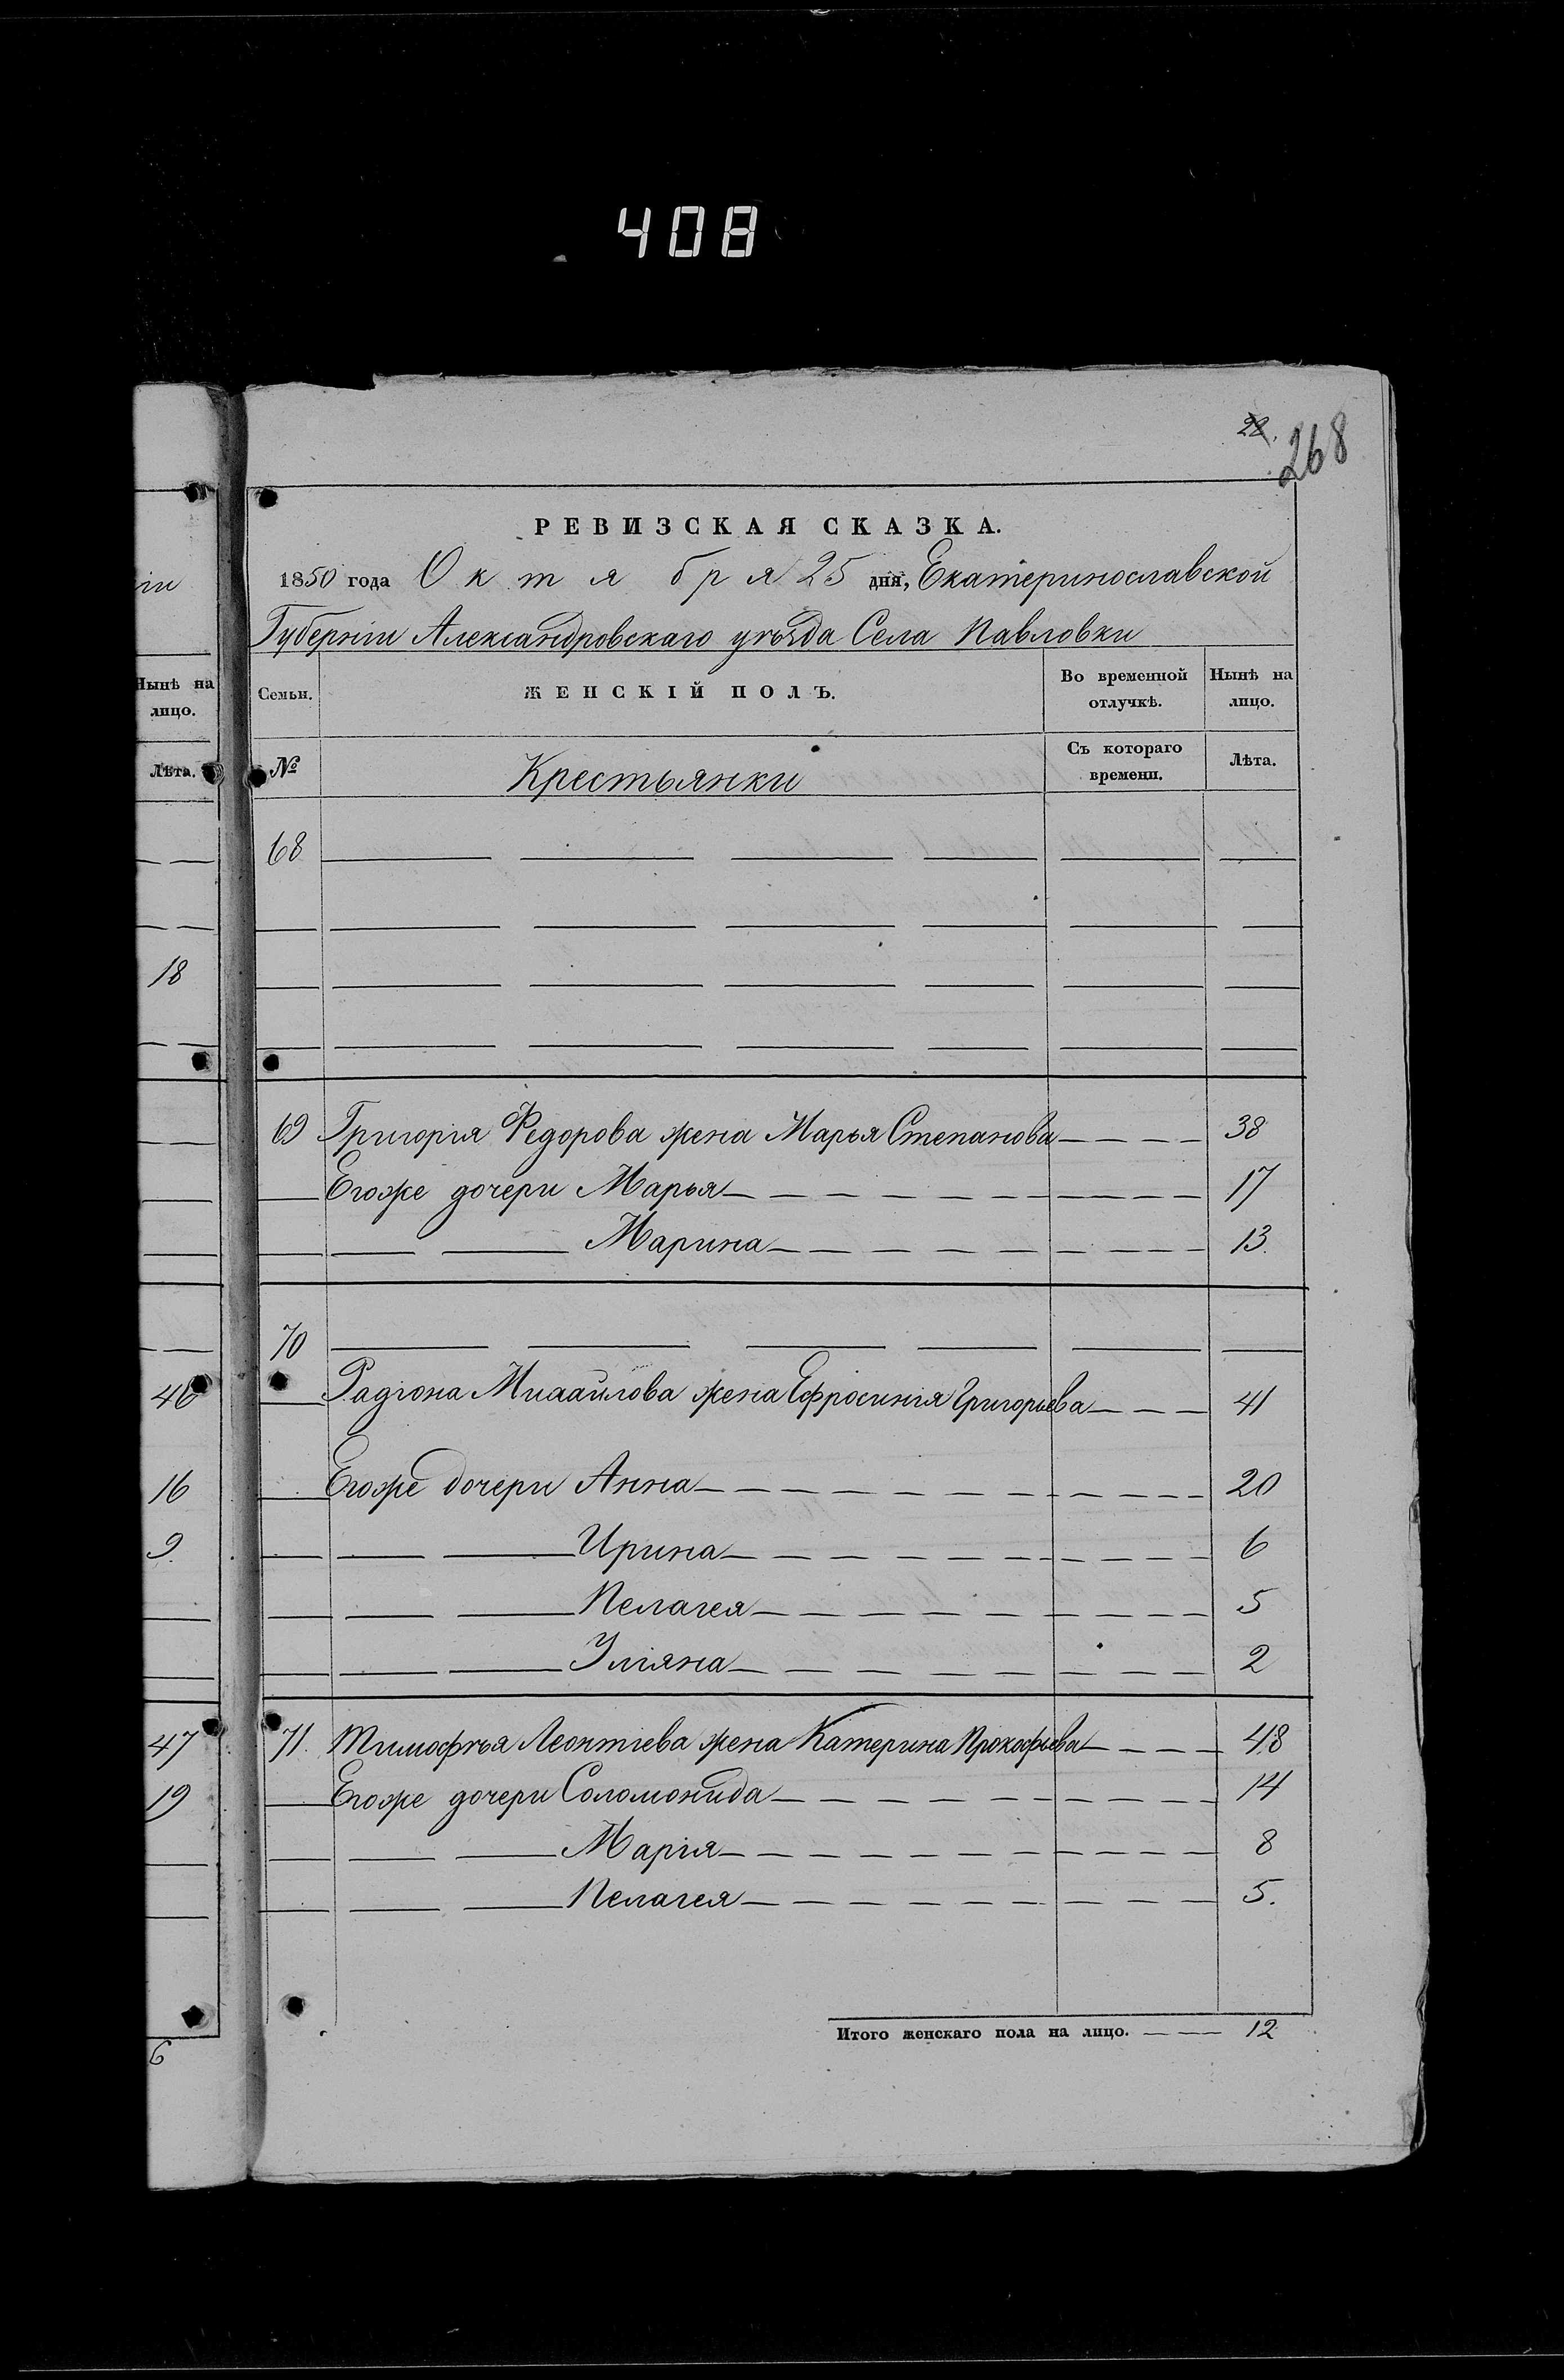 408
22.
268
РЕВИЗСКАЯ СКАЗКА.
1850 года Октября 25 дня, Екатеринославской
Губерніи Александровскаго уѣзда Села Павловки
Семьи.
ЖЕНСКІЙ ПОЛЪ.
Во временной отлучкѣ.
Нынѣ на лицо.
№
Крестьянки
Съ котораго времени.
Лѣта.
68
69 Григорія Федорова жена Марья Степанова 38
Егоже дочери Марья 17
Марина 13.
70
Радіона Михайлова жена Ефросинія Григорьева 41
Егоже дочери Анна 20
Ирина 6
Пелагея 5
Уліяна 2
71. Тимофѣя Леонтіева жена Катерина Прокофьева 48
Егоже дочери Соломонида 14
Марія 8
Пелагея 5.
Итого женскаго пола на лицо. 12
іи
Нынѣ на
лицо.
Лѣта.
18
46
16
9.
47
19
6